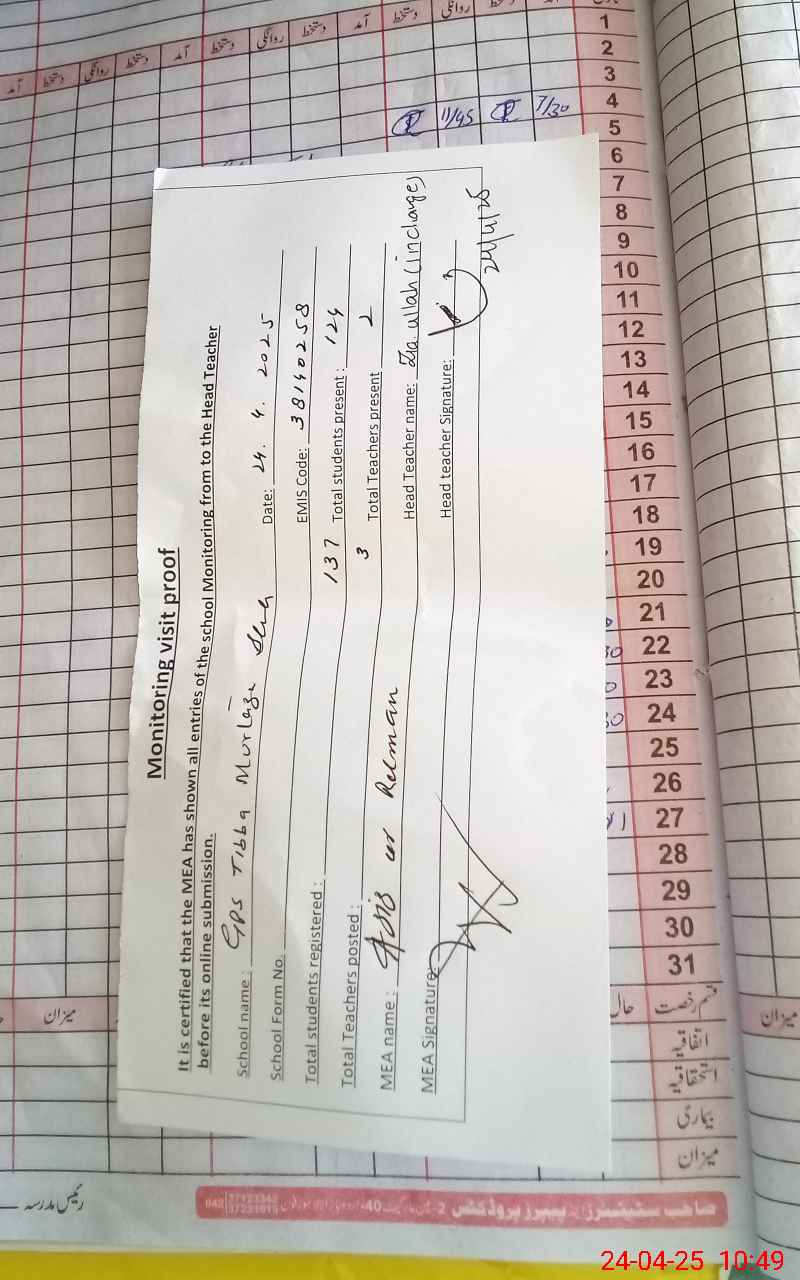 Monitoring visit proof
It is certified that the MEA has shown all entries of the school Monitoring from to the Head Teacher
before its online submission.
School name : GPS Tibba Date: 24. 4. 2025
School Form No. EMIS Code: 38140258
Total students registered : 137 Total students present : 124
Total Teachers posted : 3 Total Teachers present 2
MEA name : ur Rehman Head Teacher name: ullah (incharge)
MEA Signature: Head teacher Signature:
24/4/25
آمد دستخط روانگی دستخط آمد دستخط روانگی دستخط آمد دستخط روانگی
11/45 7/30
1
2
3
4
5
6
7
8
9
10
11
12
13
14
15
16
17
18
19
20
21
22
23
24
25
26
27
28
29
30
31
قسم رخصت حال
اتفاقیہ
استحقاقیہ
بیماری
میزان
میزان
میزان
رئیس مدرسہ
24-04-25 10:49